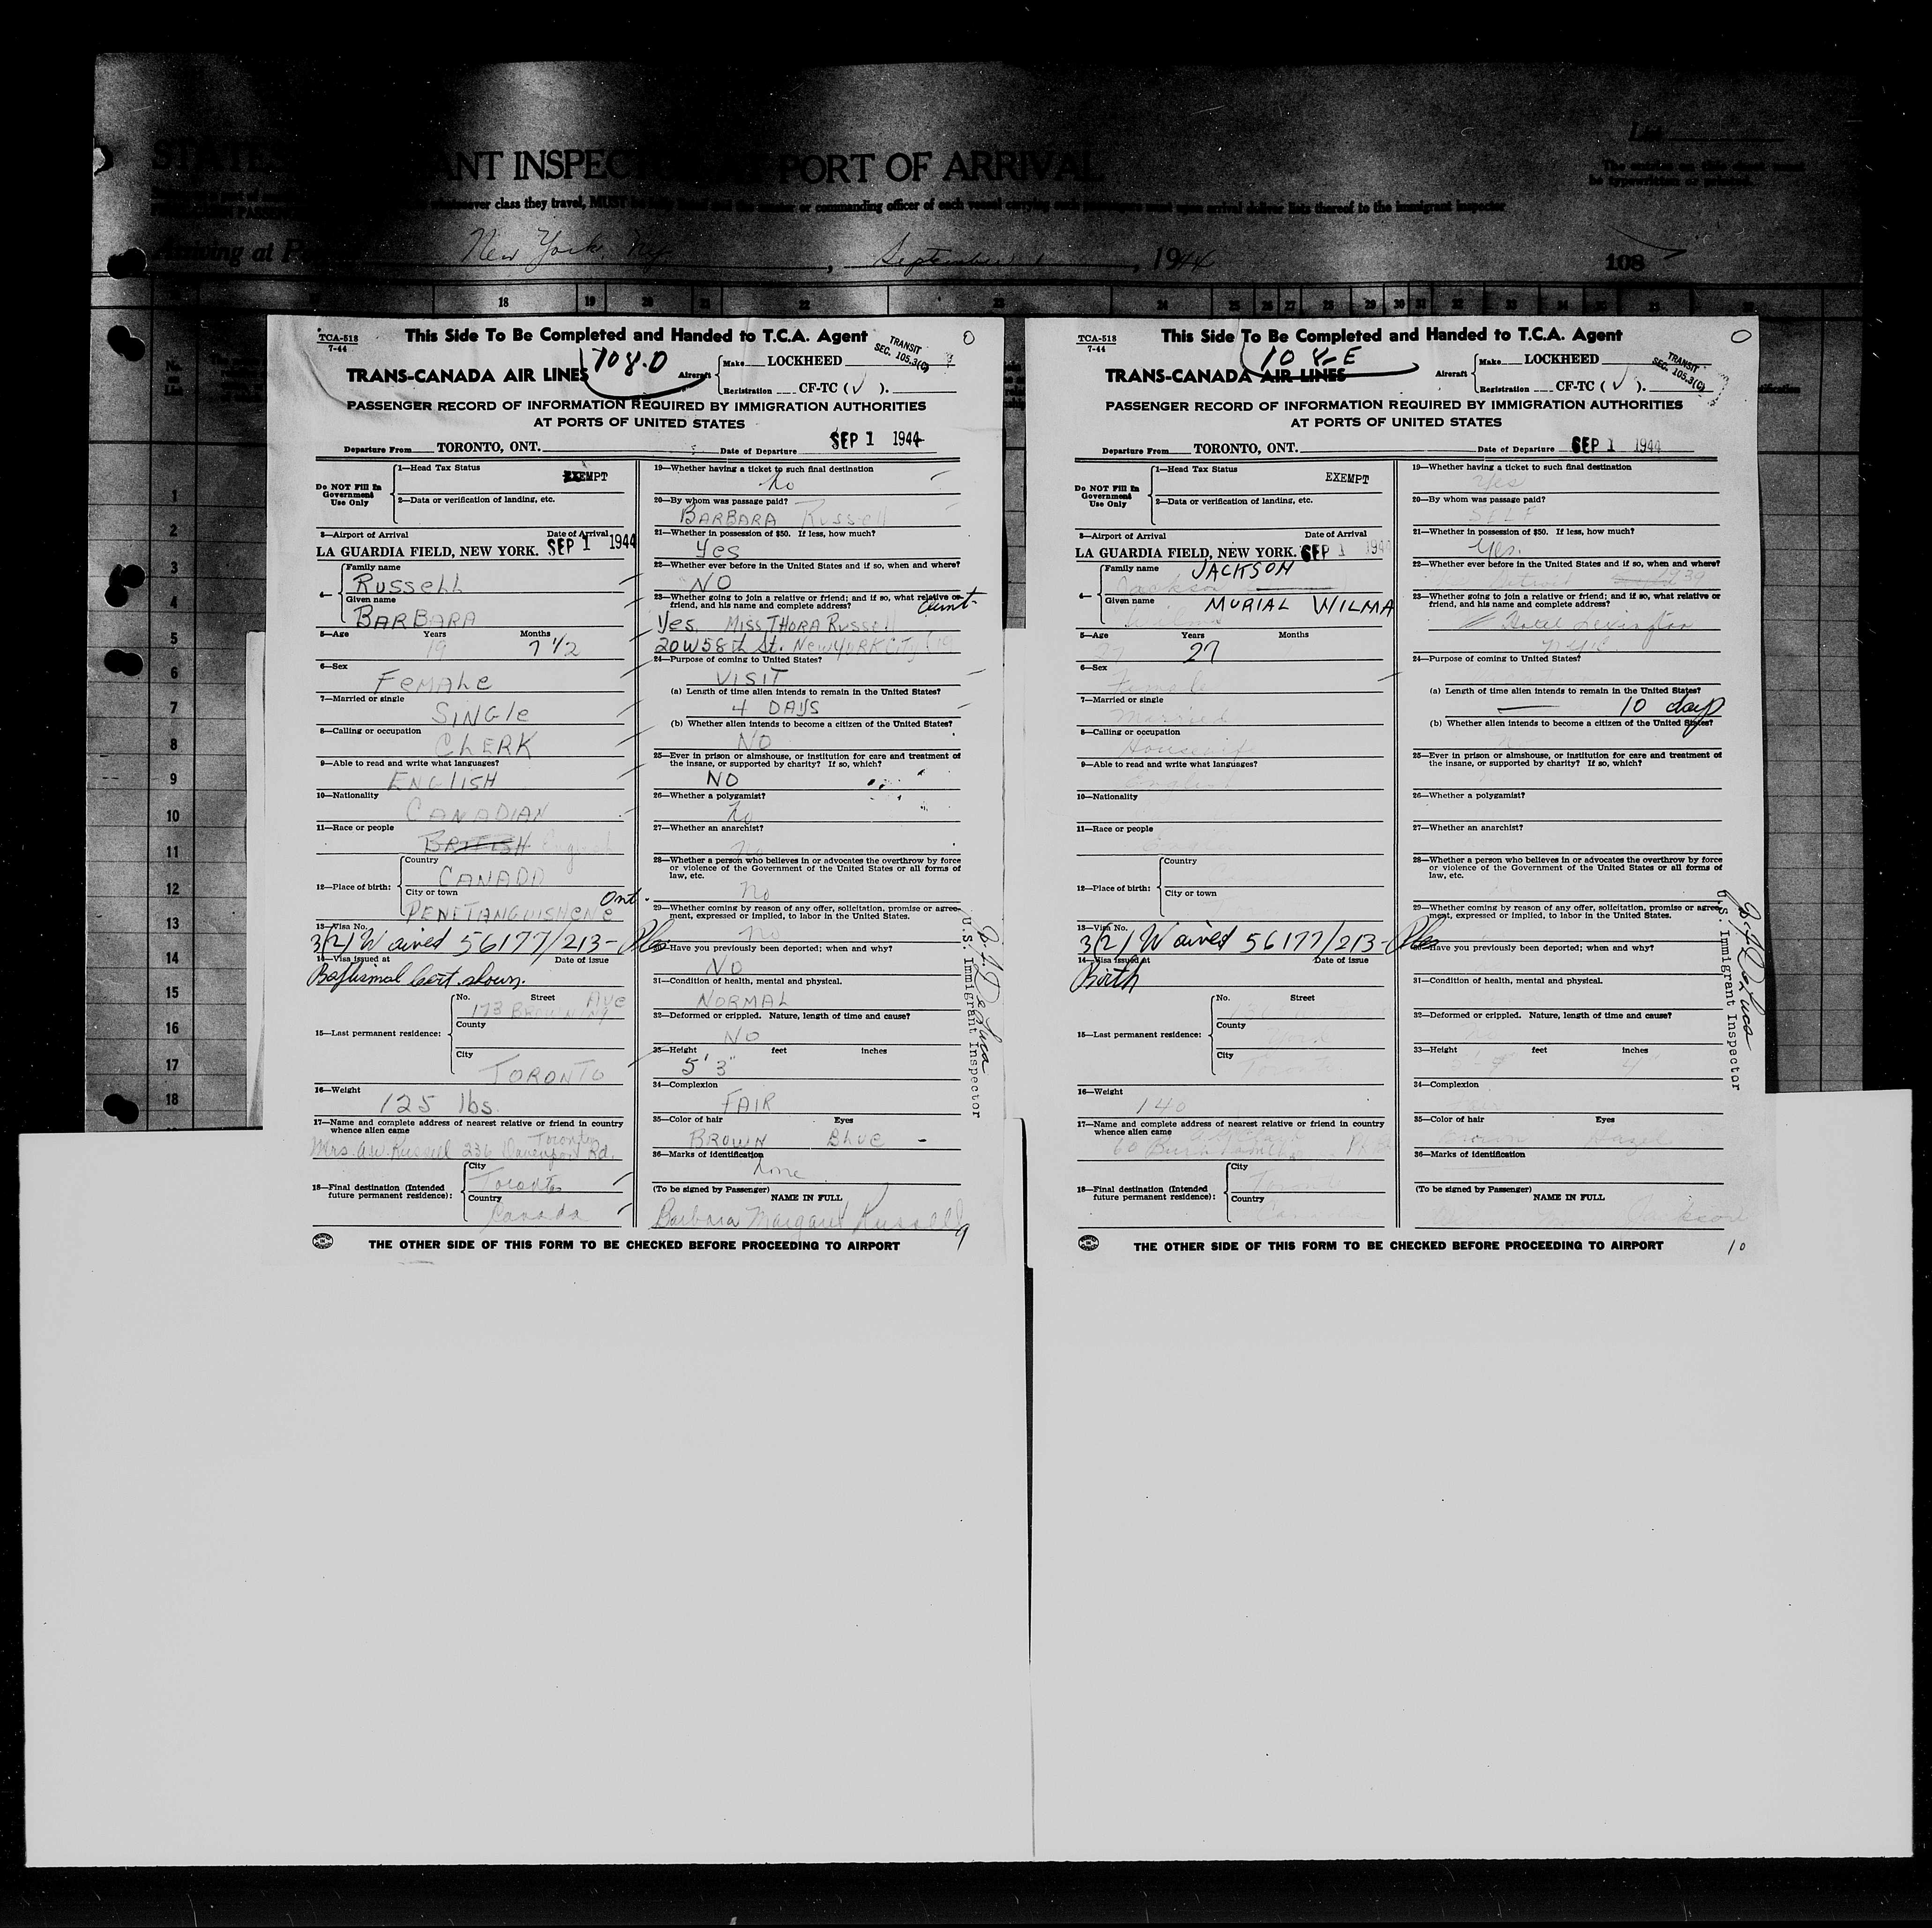 ANT INSPEC PORT OF ARRIVAL
whatsoever class they travel, MUST or commanding officer of each vessel carrying such passengers must upon arrival deliver lists thereof to the immigrant inspector
Arriving at New York, NY, September 1, 1944
108
18 19 20 21 22 23 24 25 26 27 28 29 30 31 32 33 34
1
2
3
4
5
6
7
8
9
10
11
12
13
14
15
16
17
18
TCA-518
7-44
This Side To Be Completed and Handed to T.C.A. Agent
108-D
TRANSIT
SEC. 105.3(C)
TRANS-CANADA AIR LINES
Aircraft
Make LOCKHEED
Registration CF-TC (√).
PASSENGER RECORD OF INFORMATION REQUIRED BY IMMIGRATION AUTHORITIES
AT PORTS OF UNITED STATES
Departure From TORONTO, ONT. Date of Departure SEP 1 1944
Do NOT Fill In
Government
Use Only
1—Head Tax Status
EXEMPT
2—Data or verification of landing, etc.
3—Airport of Arrival Date of Arrival
LA GUARDIA FIELD, NEW YORK. SEP 1 1944
4—
Family name
Russell
Given name
BARBARA
5—Age Years Months
19 7 1/2
6—Sex
FEMALE
7—Married or single
SINGLE
8—Calling or occupation
CLERK
9—Able to read and write what languages?
ENGLISH
10—Nationality
CANADIAN
11—Race or people
BRITISH English
12—Place of birth:
Country
CANADA
City or town
PENETANGUISHENE Ont.
13—Visa No.
3(2) Waived 56177/213-
14—Visa issued at Date of issue
Baptismal Cert. shown.
15—Last permanent residence:
No. Street
173 BROWNING Ave
County
City
TORONTO
16—Weight
125 lbs.
17—Name and complete address of nearest relative or friend in country
whence alien came
Mrs. A.W. Russell 236 Davenport Rd. Toronto
18—Final destination (Intended
future permanent residence):
City
Toronto
Country
Canada
19—Whether having a ticket to such final destination
No
20—By whom was passage paid?
BARBARA Russell
21—Whether in possession of $50. If less, how much?
Yes
22—Whether ever before in the United States and if so, when and where?
NO
23—Whether going to join a relative or friend; and if so, what relative or
friend, and his name and complete address?
Aunt-
Yes, MISS THORA RUSSELL
20 W 58th St. NEW YORK City (19)
24—Purpose of coming to United States?
VISIT
(a) Length of time alien intends to remain in the United States?
4 DAYS
(b) Whether alien intends to become a citizen of the United States?
NO
25—Ever in prison or almshouse, or institution for care and treatment of
the insane, or supported by charity? If so, which?
NO
26—Whether a polygamist?
No
27—Whether an anarchist?
No
28—Whether a person who believes in or advocates the overthrow by force
or violence of the Government of the United States or all forms of
law, etc.
No
29—Whether coming by reason of any offer, solicitation, promise or agree-
ment, expressed or implied, to labor in the United States.
No
30—Have you previously been deported; when and why?
NO
31—Condition of health, mental and physical.
NORMAL
32—Deformed or crippled. Nature, length of time and cause?
NO
33—Height feet inches
5' 3"
34—Complexion
FAIR
35—Color of hair Eyes
BROWN BLUE
36—Marks of identification
None
(To be signed by Passenger)
NAME IN FULL
Barbara Margaret Russell
9
THE OTHER SIDE OF THIS FORM TO BE CHECKED BEFORE PROCEEDING TO AIRPORT
U.S. Immigrant Inspector
TCA-518
7-44
This Side To Be Completed and Handed to T.C.A. Agent
108-E
TRANSIT
SEC. 105.3(C)
TRANS-CANADA AIR LINES
Aircraft
Make LOCKHEED
Registration CF-TC (√).
PASSENGER RECORD OF INFORMATION REQUIRED BY IMMIGRATION AUTHORITIES
AT PORTS OF UNITED STATES
Departure From TORONTO, ONT. Date of Departure SEP 1 1944
Do NOT Fill In
Government
Use Only
1—Head Tax Status
EXEMPT
2—Data or verification of landing, etc.
3—Airport of Arrival Date of Arrival
LA GUARDIA FIELD, NEW YORK. SEP 1 1944
4—
Family name
JACKSON
Jackson
Given name
MURIAL WILMA
Wilma
5—Age Years Months
27 27
6—Sex
Female
7—Married or single
Married
8—Calling or occupation
Housewife
9—Able to read and write what languages?
English
10—Nationality
11—Race or people
12—Place of birth:
Country
City or town
13—Visa No.
3(2) Waived 56177/213-
14—Visa issued at Date of issue
Birth
15—Last permanent residence:
No. Street
County
York
City
Toronto
16—Weight
140
17—Name and complete address of nearest relative or friend in country
whence alien came
60
18—Final destination (Intended
future permanent residence):
City
Toronto
Country
Canada
19—Whether having a ticket to such final destination
Yes
20—By whom was passage paid?
SELF
21—Whether in possession of $50. If less, how much?
Yes.
22—Whether ever before in the United States and if so, when and where?
Detroit 1939
23—Whether going to join a relative or friend; and if so, what relative or
friend, and his name and complete address?
Hotel Lexington
NYC
24—Purpose of coming to United States?
(a) Length of time alien intends to remain in the United States?
10 days
(b) Whether alien intends to become a citizen of the United States?
25—Ever in prison or almshouse, or institution for care and treatment of
the insane, or supported by charity? If so, which?
26—Whether a polygamist?
27—Whether an anarchist?
28—Whether a person who believes in or advocates the overthrow by force
or violence of the Government of the United States or all forms of
law, etc.
29—Whether coming by reason of any offer, solicitation, promise or agree-
ment, expressed or implied, to labor in the United States.
Have you previously been deported; when and why?
31—Condition of health, mental and physical.
32—Deformed or crippled. Nature, length of time and cause?
33—Height feet inches
34—Complexion
35—Color of hair Eyes
Brown Hazel
36—Marks of identification
(To be signed by Passenger)
NAME IN FULL
Jackson
10
THE OTHER SIDE OF THIS FORM TO BE CHECKED BEFORE PROCEEDING TO AIRPORT
U.S. Immigrant Inspector